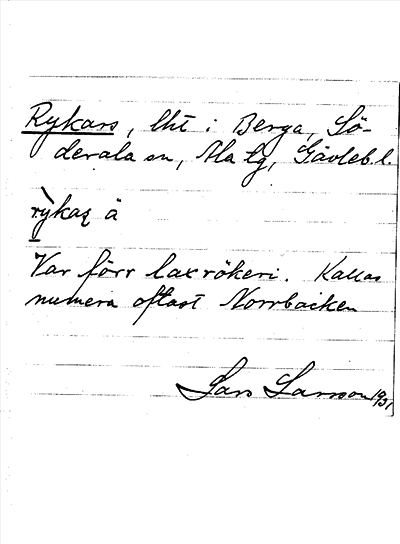 Rykars, lht i Berga, Sö-
derala sn, Ala tg, Gävleb.l.
rykaʂ å
Var förr laxrökeri. Kallas
numera oftast Norrbacken
Lars Larsson 1931